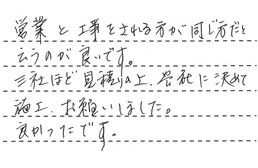 営業と工事をされる方が同じ方だと
云うのが良いです。
三社ほど見積りの上、御社に決めて
施工、お願いしました。
良かったです。